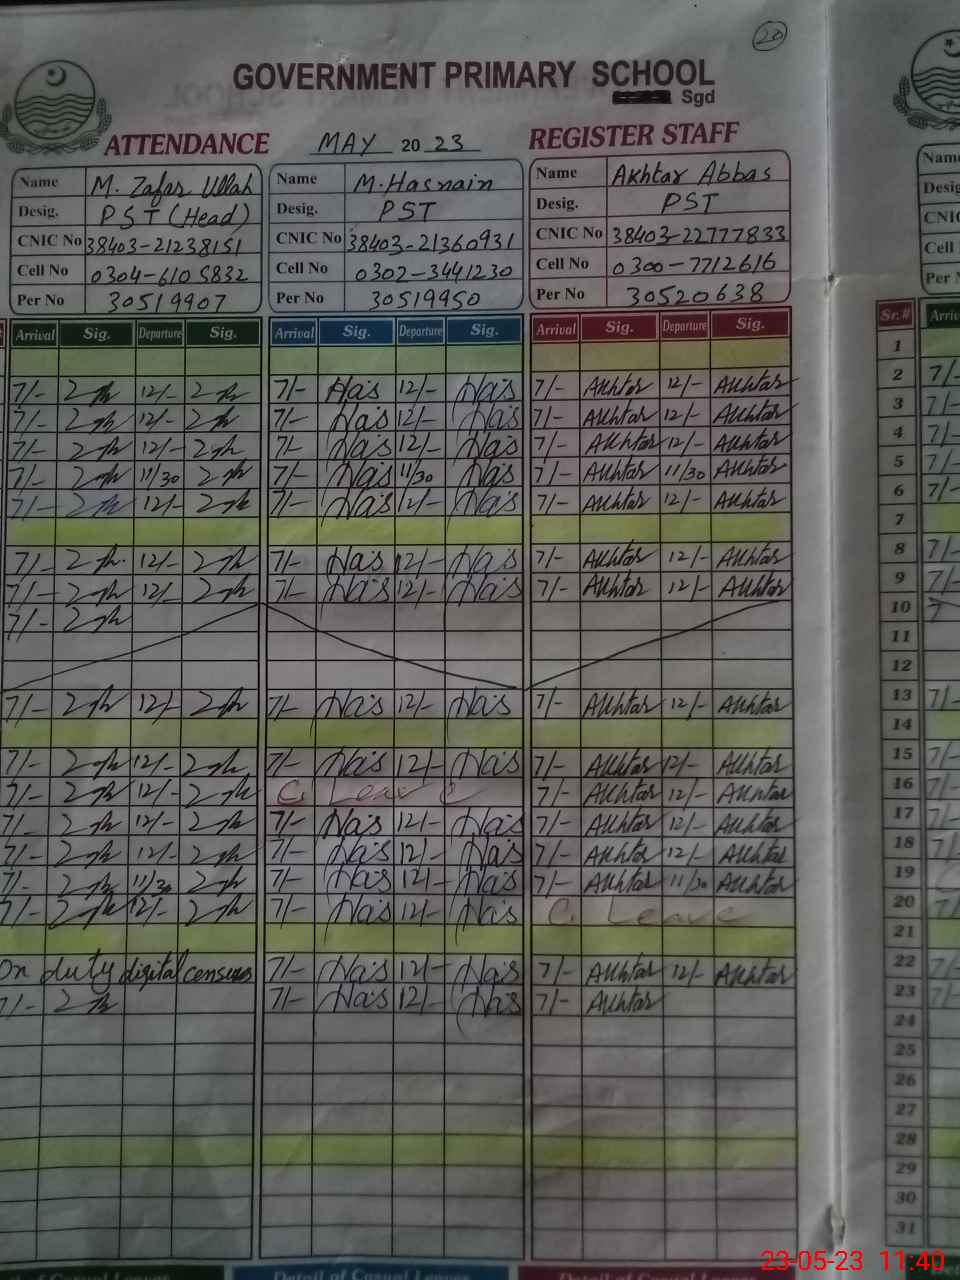 20
GOVERNMENT PRIMARY SCHOOL
Sgd
ATTENDANCE MAY 20 23 REGISTER STAFF
Name M. Zafar Ullah Name M. Hasnain Name Akhtar Abbas Name
Desig. PST (Head) Desig. PST Desig. PST
CNIC No 38403-21238151 CNIC No 38403-21360931 CNIC No 38403-22777833
Cell No 0304-6105832 Cell No 0302-3441230 Cell No 0300-7712616
Per No 30519907 Per No 30519950 Per No 30520638
Arrival Sig. Departure Sig. Arrival Sig. Departure Sig. Arrival Sig. Departure Sig. Sr.#
1
7/- 12/- 7/- Has 12/- Has 7/- Akhtar 12/- Akhtar 2 7/-
7/- 12/- 7/- Has 12/- Has 7/- Akhtar 12/- Akhtar 3 7/-
7/- 12/- 7/- Has 12/- Has 7/- Akhtar 12/- Akhtar 4 7/-
7/- 11/30 7/- Has 11/30 Has 7/- Akhtar 11/30 Akhtar 5 7/-
7/- 12/- 7/- Has 12/- Has 7/- Akhtar 12/- Akhtar 6 7/-
7
7/- 12/- 7/- Has 12/- Has 7/- Akhtar 12/- Akhtar 8 7/-
7/- 12/- 7/- Has 12/- Has 7/- Akhtar 12/- Akhtar 9 7/-
7/- 10
11
12
7/- 12/- 7/- Has 12/- Has 7/- Akhtar 12/- Akhtar 13 7/-
14
7/- 12/- 7/- Has 12/- Has 7/- Akhtar 12/- Akhtar 15 7/-
7/- 12/- C. Leave 7/- Akhtar 12/- Akhtar 16 7/-
7/- 12/- 7/- Has 12/- Has 7/- Akhtar 12/- Akhtar 17 7/-
7/- 12/- 7/- Has 12/- Has 7/- Akhtar 12/- Akhtar 18 7/-
7/- 11/30 7/- Has 12/- Has 7/- Akhtar 11/30 Akhtar 19
7/- 12/- 7/- Has 12/- Has C. Leave 20 7/-
21
On duty digital census 7/- Has 12/- Has 7/- Akhtar 12/- Akhtar 22 7/-
7/- 7/- Has 12/- Has 7/- Akhtar 23 7/-
24
25
26
27
28
29
30
31
23-05-23 11:40